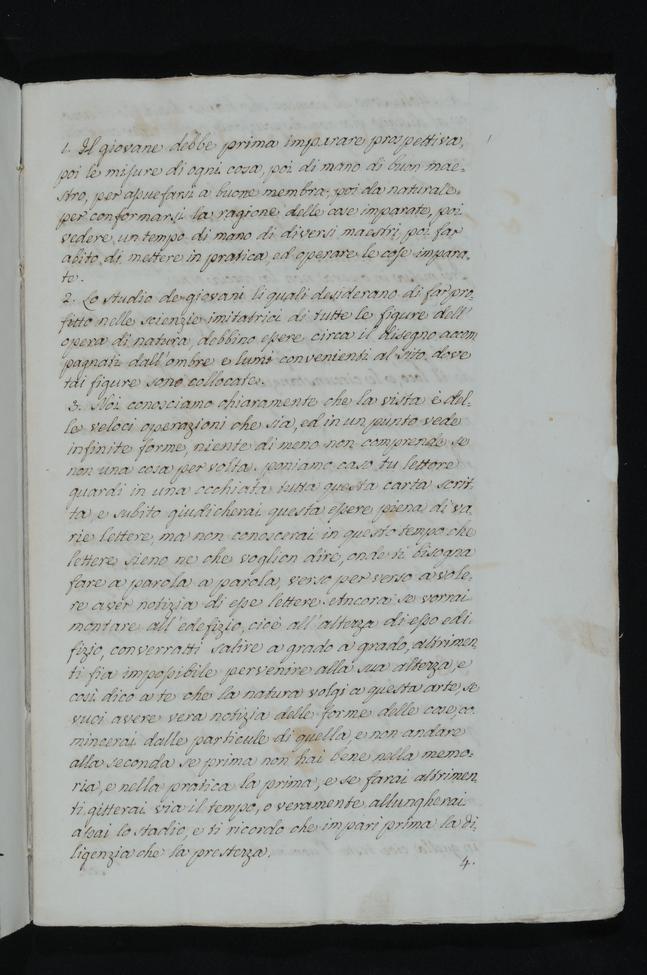 1. Il giovane debbe prima imparare prospettiva,
poi le misure di ogni cosa, poi di mano di buon mae-
stro, per assuefarsi a buone membra, poi da naturale
per conformarsi la ragione delle cose imparate, poi
vedere un tempo di mano di diversi maestri, poi far
abito di mettere in pratica, ed operare le cose impara-
te.
2. Lo studio de giovani li quali desiderano di far pro-
fitto nelle scienzie imitatrici di tutte le figure dell'
opera di natura, debbino essere circa il disegno accom
pagnati dall'ombre e lumi convenienti al sito dove
tai figure sono collocate.
3. Noi conosciamo chiaramente che la vista è del-
le veloci operazioni che sia, ed in un punto vede
infinite forme, niente di meno non comprende se
non una cosa per volta. poniamo caso, tu lettore
guardi in una occhiata tutta questa carta scrit-
ta, e subito giudicherai questa essere piena di va
rie lettere, ma non conoscerai in questo tempo che
lettere sieno ne che voglion dire, onde ti bisogna
fare a parola a parola, verso per verso a vole-
re aver notizia di esse lettere. Ancora se vorrai
montare all'edefizio, cioè all'altezza di esso edi
fizio, converratti salire a grado a grado, altrimen
ti fia impossibile pervenire alla sua altezza, e
così dico a te che la natura volgi a questa arte, se
vuoi avere vera notizia delle forme delle cose, co
mincerai dalle particule di quella, e non andare
alla seconda se prima non hai bene nella memo-
ria, e nella pratica la prima, e se farai altrimen
ti gitterai via il tempo, o veramente allungherai
assai lo stadio, e ti ricordo che impari prima la di
ligenzia che la prestezza.
4.